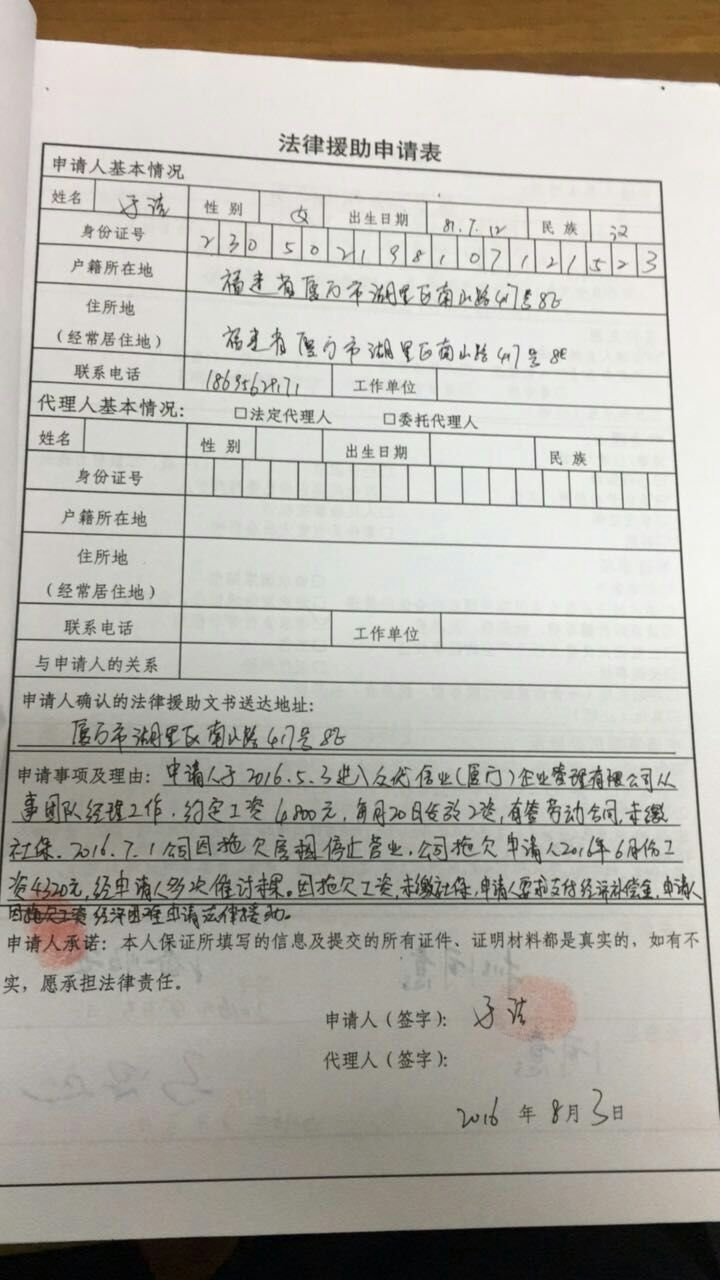 法律援助申请表
申请人基本情况
姓名 于洁 性别 女 出生日期 81.7.12 民族 汉
身份证号 230502198107121523
户籍所在地 福建省厦门市湖里区南山路417号8E
住所地
(经常居住地) 福建省厦门市湖里区南山路417号8E
联系电话 工作单位
代理人基本情况: □法定代理人 □委托代理人
姓名 性别 出生日期 民族
身份证号
户籍所在地
住所地
(经常居住地)
联系电话 工作单位
与申请人的关系
申请人确认的法律援助文书送达地址:
厦门市湖里区南山路417号8E
申请事项及理由: 申请人于2016.5.3进入友代信业(厦门)企业管理有限公司从
事团队经理工作.约定工资4800元,每月20日发放工资,有签劳动合同,未缴
社保.2016.7.1公司因拖欠房租停止营业.公司拖欠申请人2016年6月份工
资4320元,经申请人多次催讨未果。因拖欠工资,未缴社保,申请人要求支付经济补偿金.申请人
因拖欠工资经济困难申请法律援助。
申请人承诺: 本人保证所填写的信息及提交的所有证件、证明材料都是真实的,如有不
实,愿承担法律责任。
申请人(签字): 于洁
代理人(签字):
2016年8月3日